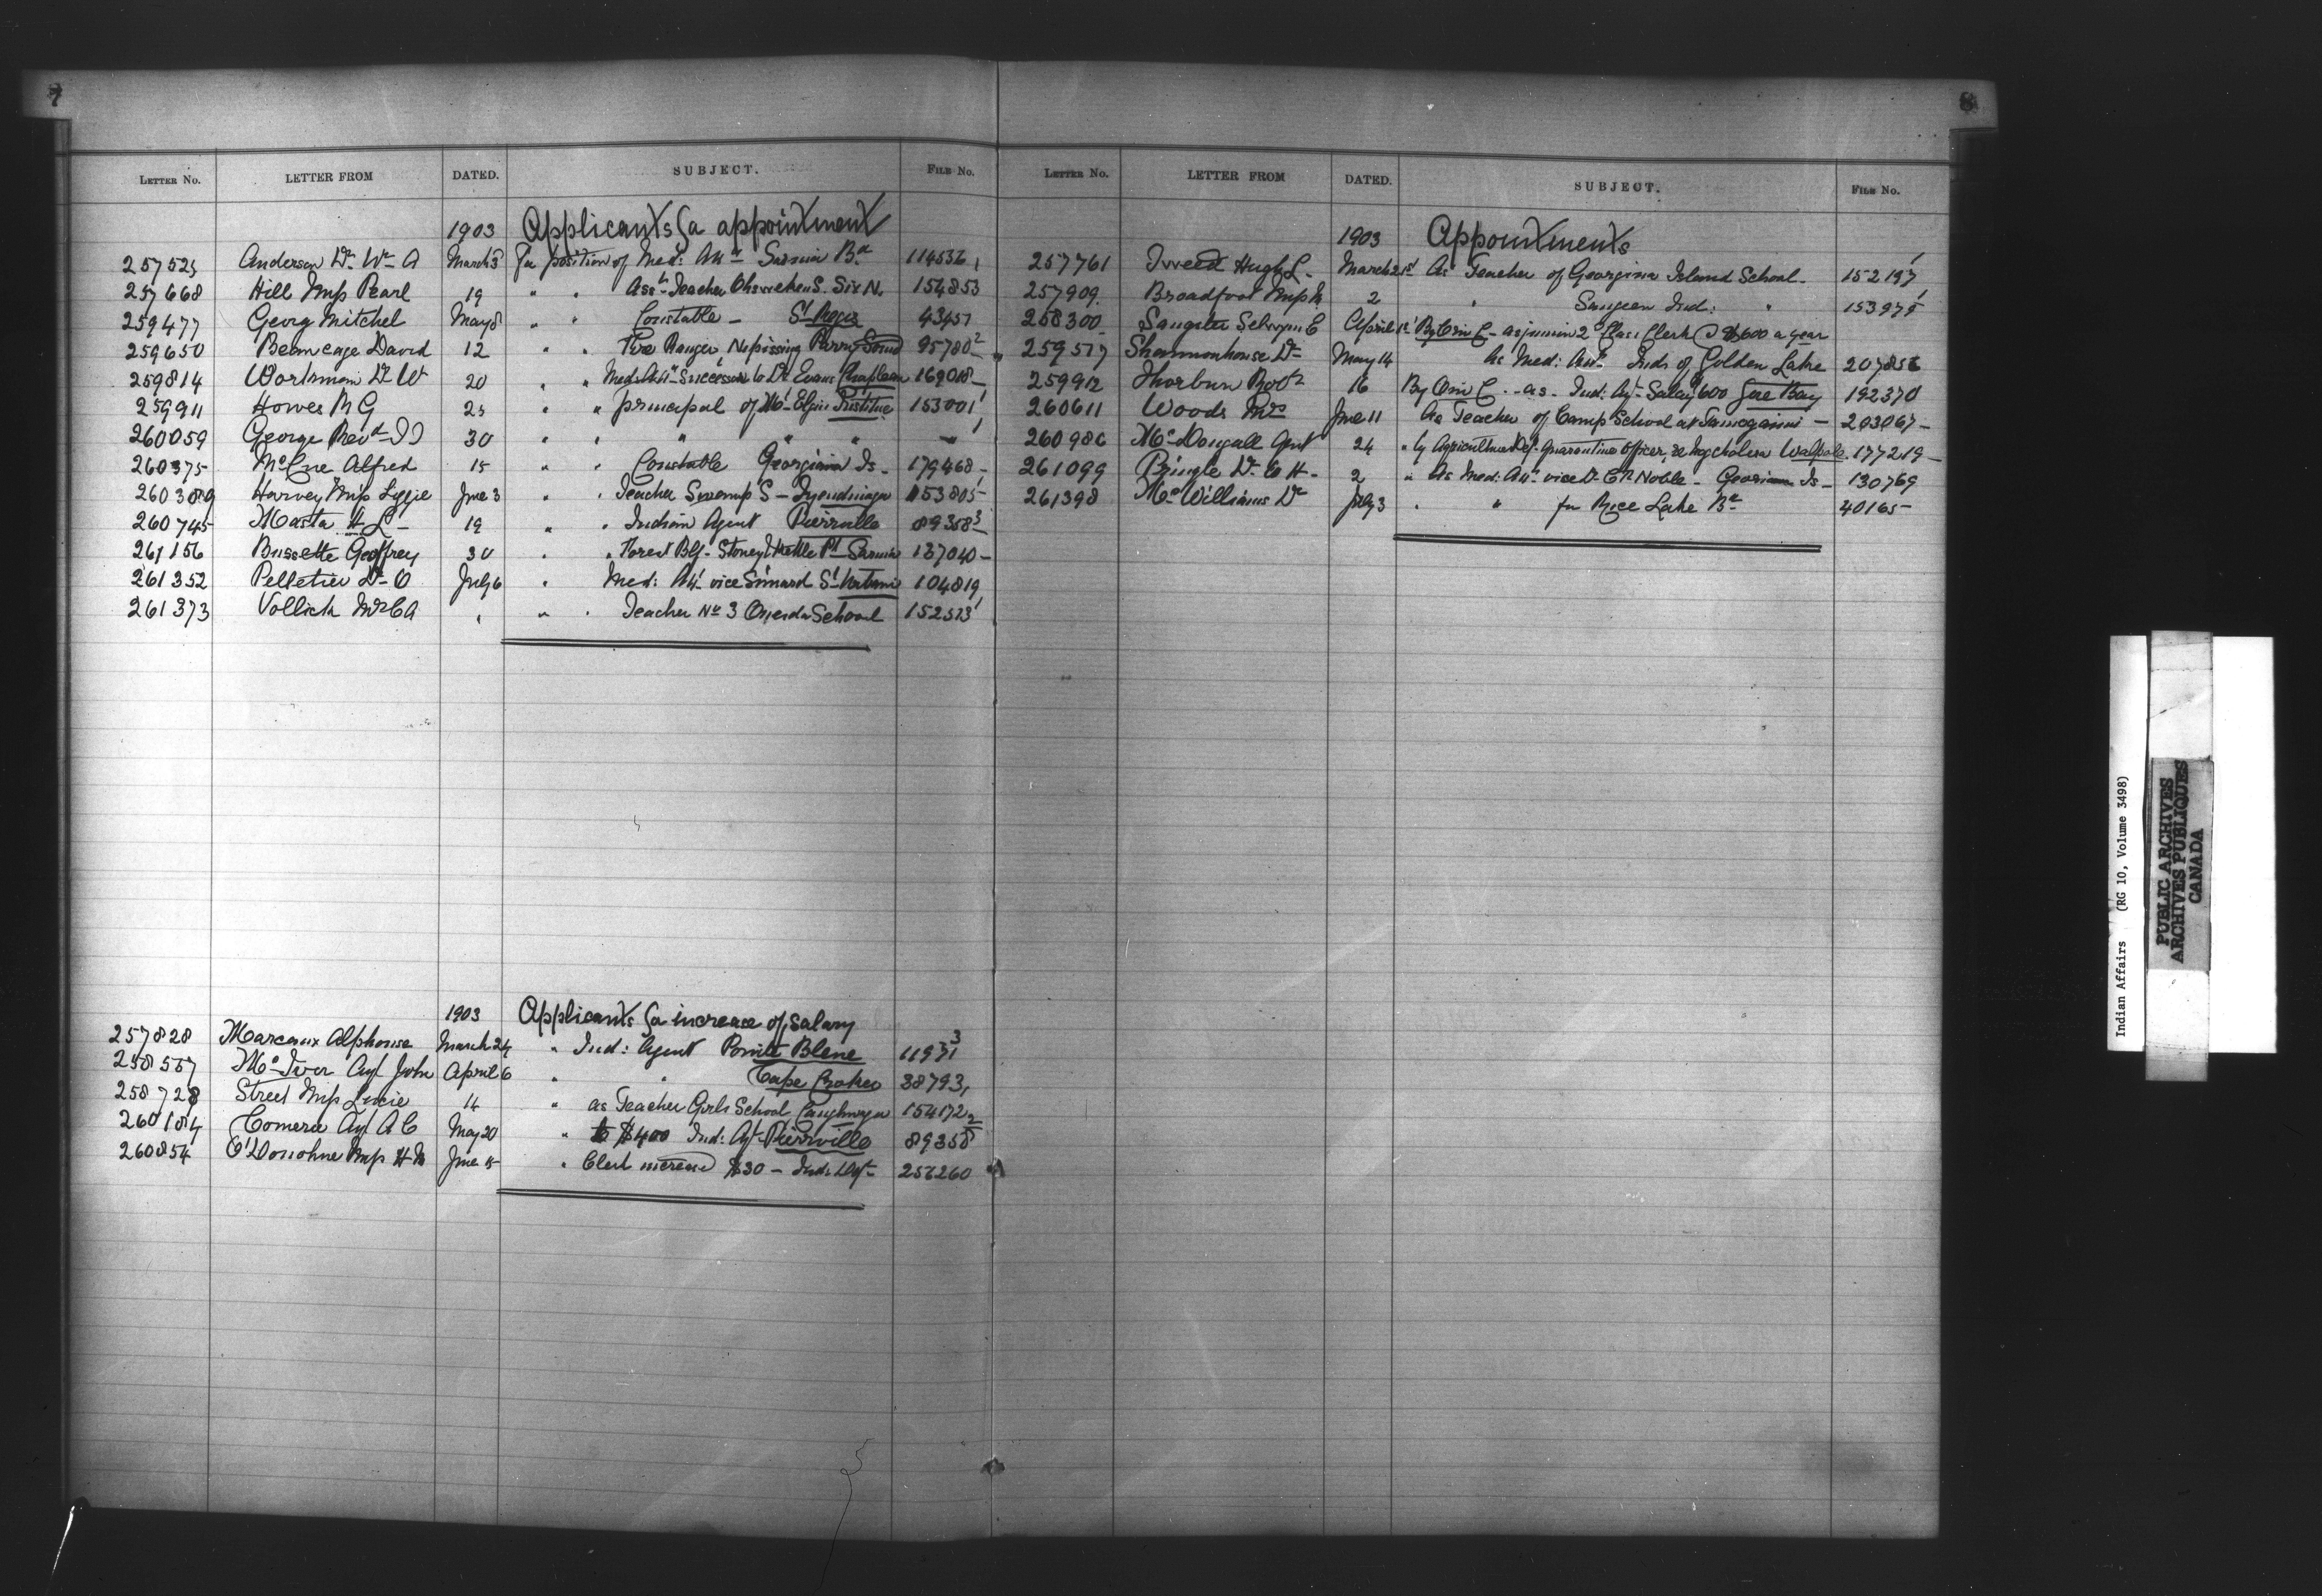 7
LETTER No. LETTER FROM DATED. SUBJECT. FILE No.
1903 Applicants for appointment
25752 Anderson Dr. Wm A March 3 For position of Med: Att Sarnia Bd 114536
257668 Hill Miss Pearl 19 " " Asst Teacher Ohsweken S. Six N. 154853
259477 Georg Mitchel May 8 " " Constable - St Regis 43457
259650 Beaucage David 12 " " Fire Ranger, Nipissing Parry Sound 95780-2
259814 Workman Dr W 20 " " Med: Att Successor to Dr Evans Chapleau 169018-
259911 Howes R G 25 " " principal of Mt Elgin Institue 153001
260059 George Revd 30 " " " " "
260375 McCue Alfred 15 " " Constable Georgina Is - 179468-
260389 Harvey Miss Lizzie June 3 " " Teacher Swamp S - Tyendinaga 153805
260745 Masta H L - 19 " " Indian Agent Pierrville 89358-3
261156 Bussette Geoffrey 30 " " Forest Bf- Stoney & Kettle Pt Sarnia 127040-
261352 Pelletier Dr O July 6 " Med: Att vice Simard 104819
261373 Vollick Mrs C A " " " Teacher No 3 Oneida School 152513
1903 Applicants for increase of Salary
257828 Marcoux Alphonse March 24 " Ind: Agent Pointe Bleue 11971-3
258557 McIver Agt John April 6 " " Cape Croker 38793,
258728 Street Miss Lucie 14 " as Teacher Girls School Caughnawaga 154172
260184 Comeré Agt A C May 20 " to $400 Ind: Agt- Pierrville 89358-2
260854 O'Donohue Miss H M June 15 " Clerk increase $30 - Ind: Dept 256260
8
LETTER No. LETTER FROM DATED. SUBJECT. FILE No.
1903 Appointments
257761 Tweed Hugh L. March 21st As Teacher of Georgina Island School - 152197
257909. Broadfoot Miss M 2 " Saugeen Ind: " 153975
258300 Sangster Selwyn E April 1st By O in C - as junior 2nd Class Clerk @ $600 a year
259517 Shannonhouse Dr May 14 As Med: Att Inds of Golden Lake 207856
259912 Thorburn Robt 16 By O in C - as - Ind: Agt- Salary 600 Gore Bay 192370
260611 Woods Mrs June 11 As Teacher of Camp School at Tamogamin - 203067-
260986 McDougall Agnt 24 " by Agriculture Dep- Quarantine Officer, re hog cholera Walpole. 177219-
261099 Pringle Dr. W H - 2 " As Med: Att vice Dr C R Noble - Georgina Is - 130769
261398 McWilliams Dr July 3 " " for Rice Lake Bd 40165-
Indian Affairs (RG 10, Volume 3498)
PUBLIC ARCHIVES
ARCHIVES PUBLIQUES
CANADA